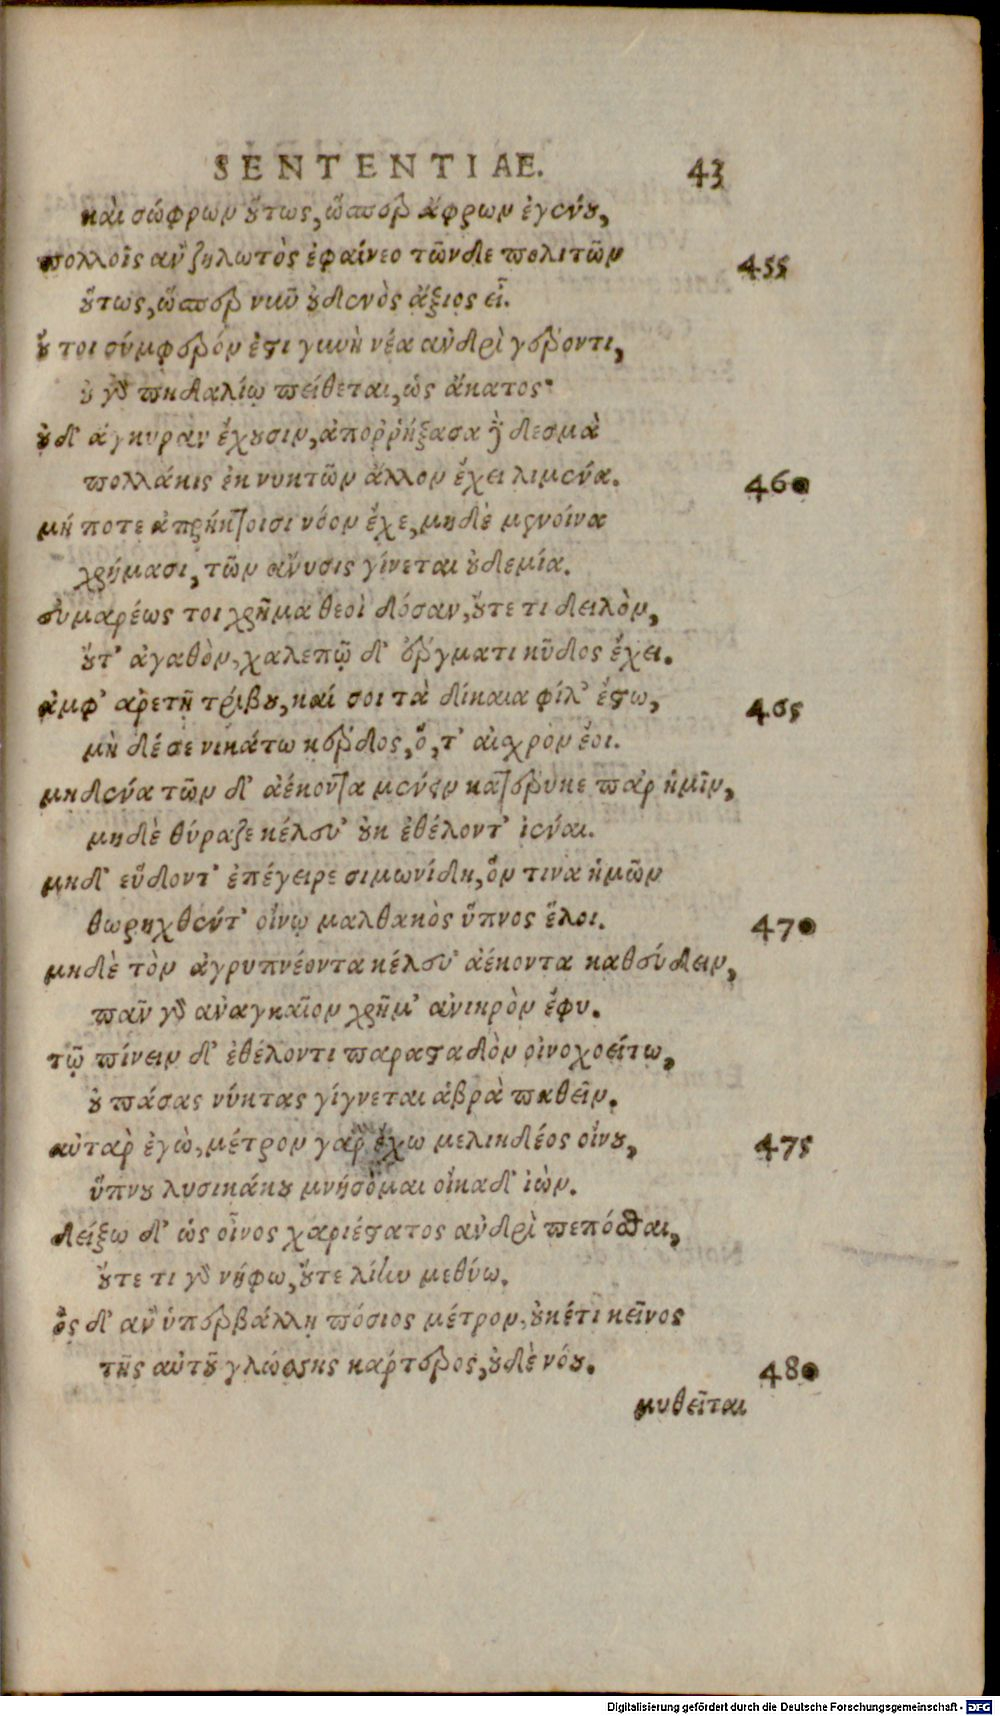 SENTENTIAE. 43
καὶ σώφρων ὅτως, ὥσπερ ἄφρων ἐγένου,
πολλοῖς ἂν ζηλωτὸς ἐφαίνεο τῶνδε πολιτῶν 455
οὕτως, ὥσπερ νῦν οὐδενὸς ἄξιος εἶ.
οὔ τοι σύμφερόν ἐστι γυνὴ νέα ἀνδρὶ γέροντι,
οὐ γὰρ πηδαλίῳ πείθεται, ὡς ἄκατος·
οὐδ' ἄγκυραν ἔχουσιν, ἀπορρήξασα δὲ δεσμὰ
πολλάκις ἐκ νυκτῶν ἄλλον ἔχει λιμένα. 460
μή ποτε ἀπρήκτοισι νόον ἔχε, μηδὲ μενοίνα
χρήμασι, τῶν ἄνυσις γίνεται οὐδεμία.
εὐμαρέως τοι χρῆμα θεοὶ δόσαν, οὔτε τι δειλὸν,
οὔτ' ἀγαθὸν, χαλεπῷ δ' ἔργματι κῦδος ἔχει.
ἀμφ' ἀρετῇ τρίβου, καί σοι τὰ δίκαια φίλ' ἔστω, 465
μὴ δέ σε νικάτω κέρδος, ὅ, τ' αἰχρὸν ἔοι.
μηδένα τῶν δ' ἀέκοντα μένειν κατέρυκε παρ ἡμῖν,
μηδὲ θύραζε κέλευ' οὐκ ἐθέλοντ' ἰέναι.
μηδ' εὕδοντ' ἐπέγειρε σιμωνίδη, ὅν τινα ἡμῶν
θωρηχθέντ' οἴνῳ μαλθακὸς ὕπνος ἕλοι. 470
μηδὲ τὸν ἀγρυπνέοντα κέλευ' ἀέκοντα καθεύδειν,
πᾶν γὰρ ἀναγκαῖον χρῆμ' ἀνιηρὸν ἔφυ.
τῷ πίνειν δ' ἐθέλοντι παρασταδὸν οἰνοχοείτω,
οὐ πάσας νύκτας γίγνεται ἁβρὰ παθεῖν.
αὐτὰρ ἐγὼ, μέτρον γὰρ ἔχω μελιηδέος οἴνου, 475
ὕπνου λυσικάκου μνήσομαι οἴκαδ' ἰών.
δείξω δ' ὡς οἶνος χαριέστατος ἀνδρὶ πεπόσθαι,
οὔτε τι γὰρ νήφω, οὔτε λίην μεθύω.
ὃς δ' ἂν ὑπερβάλλῃ πόσιος μέτρον, οὐκέτι κεῖνος
τῆς αὐτοῦ γλώσσης κάρτερος, οὐδὲ νόου. 480
μυθεῖται
Digitalisierung gefördert durch die Deutsche Forschungsgemeinschaft - DFG